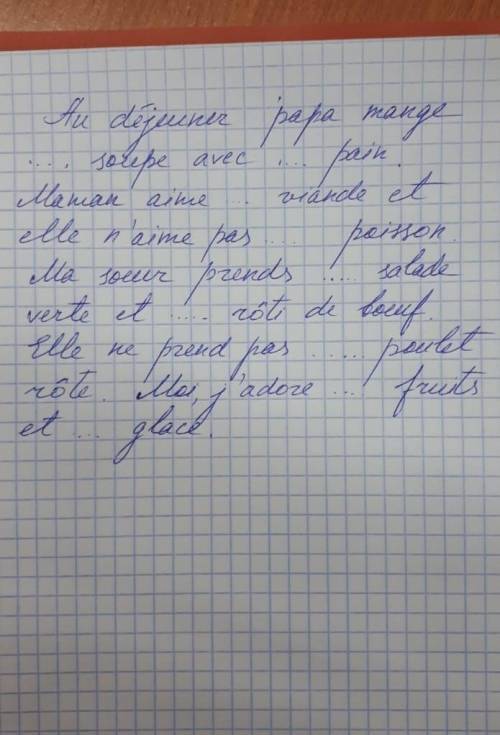 Au déjeuner papa mange
.... soupe avec .... pain.
Maman aime ... viande et
elle n'aime pas .... poisson.
Ma soeur prends ..... salade
verte et ..... rôti de boeuf.
Elle ne prend pas ..... poulet
rôte. Moi, j'adore ... fruits
et ... glace.